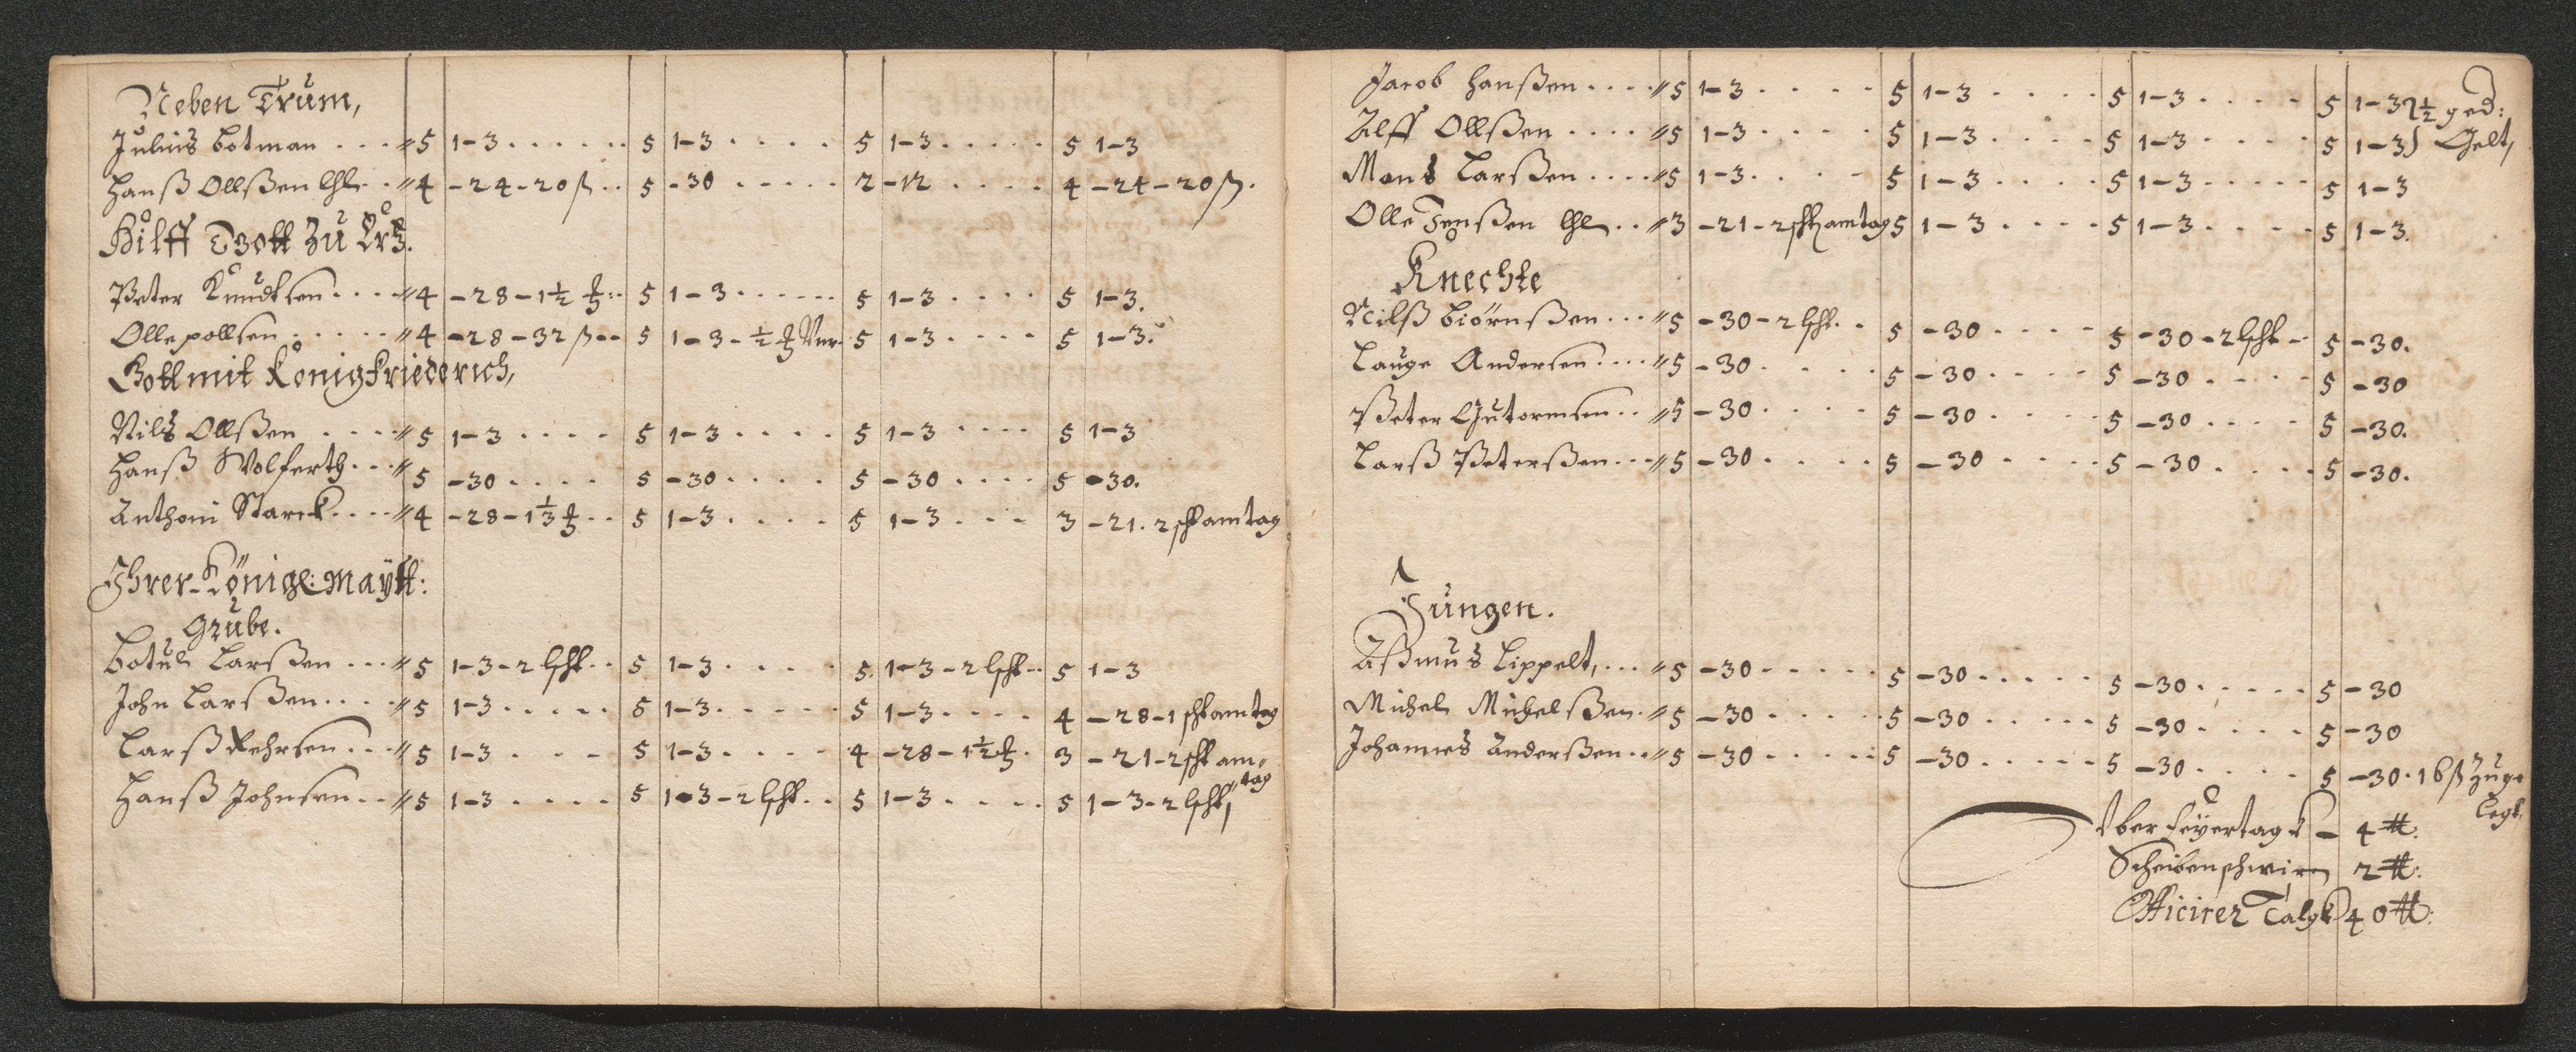 Neben Trum,
Julius botman .... // 5 1-3 ...... 5 1-3 .... 5 1-3 ..... 5 1-3
Hanß Ollßen lhl .. // 4 -24-20 ß .. 5 -30 ..... 2 -12 .... 4 -24-20 ß.
Hilff Gott Zu Ertz.
Peter Knudtsen .... // 4 -28-1½ .. 5 1-3 ...... 5 1-3 .... 5 1-3.
Olle pollsen ..... // 4 -28-32 ß .. 5 1-3-½ 5 1-3 .... 5 1-3.
Gott mit König friederich,
Nils Ollßen .... // 5 1-3 .... 5 1-3 .... 5 1-3 .... 5 1-3
Hanß Wolferth ... // 5 -30 .... 5 -30 .... 5 -30 .... 5 -30.
Anthoni Starck .... // 4 -28-1⅓ .. 5 1-3 .... 5 1-3 ... 3 -21.2 scht am tag
Ihrer Königl: Maÿtt:
Grube.
Botul Larßen ... // 5 1-3-2 lscht .. 5 1-3 .... 5. 1-3-2 lscht .. 5 1-3
John Larßen .... // 5 1-3 ..... 5 1-3 ..... 5 1-3 .... 4 -28-1 scht am tag
Larß Rehrsen ... // 5 1-3 .... 5 1-3 .... 4 -28-1½ . 3 -21-2 scht am
tag
Hanß Johnsen .. // 5 1-3 .... 5 1-3-2 lscht .. 5 1-3 .... 5 1-3-2 lscht,
Jacob Hanßen .... // 5 1-3 .... 5 1-3 .... 5 1-3 .... 5 1-3 2½ ged:
Alff Ollßen .... // 5 1-3 .... 5 1-3 .... 5 1-3 .... 5 1-3 Gelt,
Mons Larßen .... // 5 1-3 .... 5 1-3 .... 5 1-3 ..... 5 1-3
Olle Jenßen lhl .. // 3 -21-2 scht am tag 5 1-3 .... 5 1-3 .... 5 1-3.
Knechte
Nilß biörnßen ... // 5 -30-2 lscht .. 5 -30 .... 5 -30-2 lscht - 5 -30.
Lauge Andersen .... // 5 -30 .... 5 -30 .... 5 -30 .... 5 -30
Peter Gutormsen .. // 5 -30 .... 5 -30 .... 5 -30 .... 5 -30.
Larß Peterßen ... // 5 -30 .... 5 -30 .... 5 -30 .... 5 -30.
Jungen.
Aßmus Lippelt, ... // 5 -30 ..... 5 -30 ..... 5 -30 ..... 5 -30
Michel Michelßen . // 5 -30 ..... 5 -30 ..... 5 -30 .... 5 -30
Johannes Anderßen .. // 5 -30 ..... 5 -30 ..... 5 -30 .... 5 -30. 16 ß Zuge
legt.
Über feÿertag - 4 ℔.
Scheibenschmirn 2 ℔.
Officirer Talgk 40 ℔: